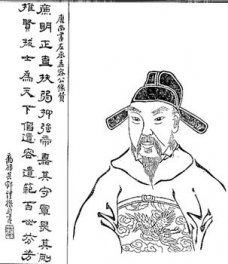 唐尚書左丞孟容公像贊
廉明正直扶弱抑強帝嘉其守軍畏其剛
推賢拔士為天下倡遺容遺範百世芬芳